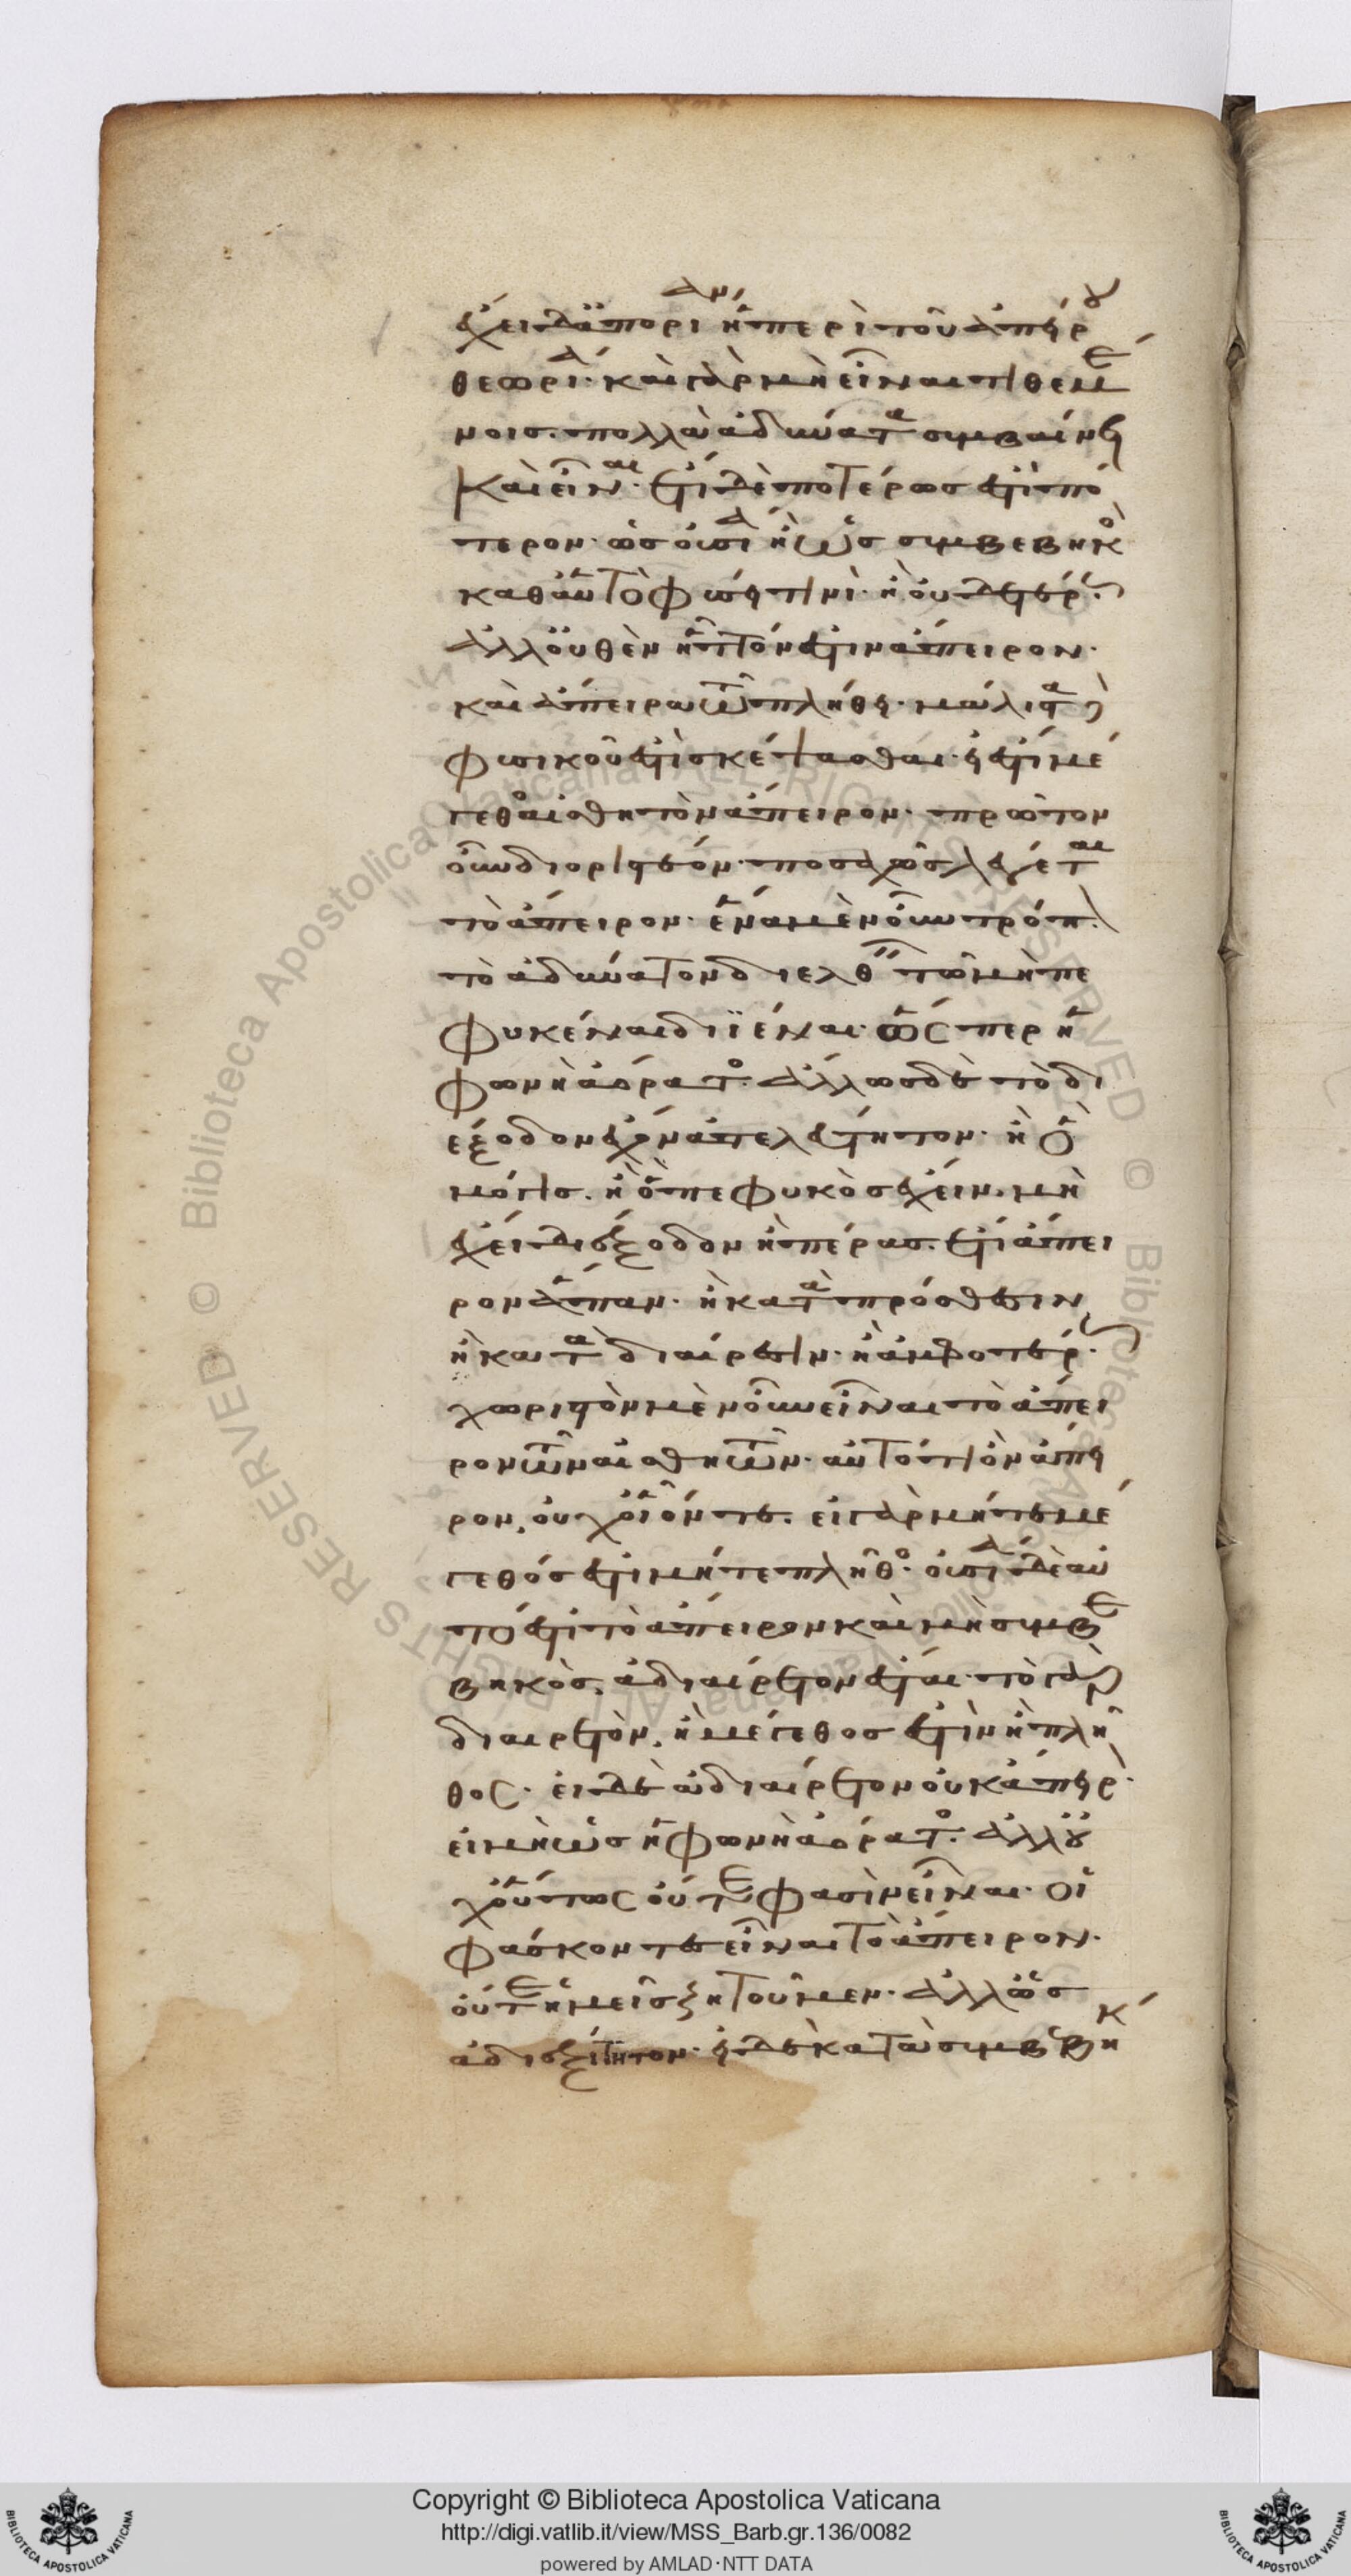 ἔχει δ' ἀπορίαν ἡ περὶ τοῦ ἀπείρου
θεωρία· καὶ γὰρ μὴ εἶναι τιθεμέ
νοις· πολλὰ ἀδύνατα συμβαίνει
καὶ εἶναι· ἔτι δὲ ποτέρως ἐστὶ πό
τερον· ὡς οὐσία ἢ ὡς συμβεβηκὸς
καθαὑτὸ φύσει τινί· ἢ οὐδετέρως·
ἀλλ' οὐθὲν ἧττον ἐστὶν ἄπειρον·
καὶ ἄπειρα τῶ πλήθει· μάλιστα δὲ
φυσικοῦ ἐστὶ σκέψασθαι· εἰ ἔστι μέ
γεθος αἰσθητὸν ἄπειρον· πρῶτον
οὖν διοριστέον· ποσαχῶς λέγεται
τὸ ἄπειρον· ἕνα μὲν οὖν τρόπον·
τὸ ἀδύνατον διελθεῖν τῶ μὴ πε
φυκέναι διϊέναι· ὥσπερ ἡ
φωνὴ ἀόρατος· ἄλλως δὲ τὸ δι
έξοδον ἔχον ἀτελεύτητον· ἢ ὃ
μόγις· ἢ ὃ πεφυκὸς ἔχειν· μὴ
ἔχει διέξοδον ἢ πέρας· ἔτι ἄπει
ρον ἅπαν· ἢ κατὰ πρόσθεσιν
ἢ κατὰ διαίρεσιν· ἢ ἀμφοτέρως·
χωριστὸν μὲν οὖν εἶναι τὸ ἄπει
ρον τῶν αἰσθητῶν· αὐτό τι ὂν ἄπει
ρον, οὐχ οἷόν τε· εἰ γὰρ μήτε μέ
γεθός ἐστι μήτε πλῆθος· οὐσία δὲ αὐ
τό ἐστι τὸ ἄπειρον καὶ μὴ συμβε
βηκὸς, ἀδιαίρετον ἔσται· τὸ γὰρ
διαιρετὸν, ἢ μέγεθος ἐστὶν ἢ πλῆ
θος· εἰ δὲ ἀδιαίρετον οὐκ ἄπειρον·
εἰ μὴ ὡς ἡ φωνὴ ἀόρατος· ἀλλ' οὐ
χ οὕτως οὔτε φασὶν εἶναι· οἱ
φάσκοντες εἶναι τὸ ἄπειρον·
οὔτε ἡμεῖς ζητοῦμεν· ἀλλ' ὡς
ἀδιεξίτητον· εἰ δὲ κατὰ συμβεβηκ
Copyright © Biblioteca Apostolica Vaticana
http://digi.vatlib.it/view/MSS_Barb.gr.136/0082
powered by AMLAD·NTT DATA